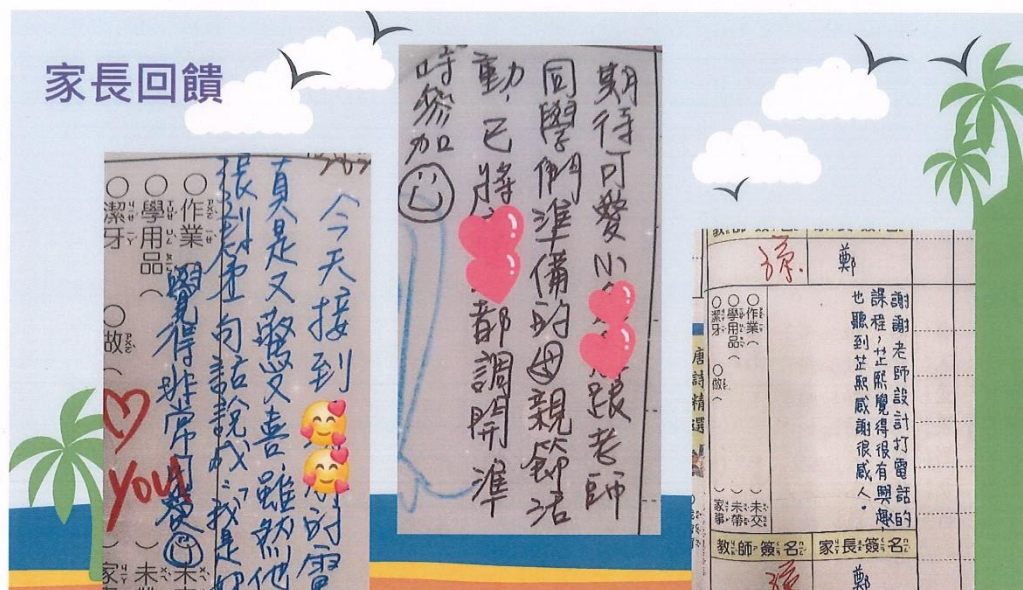 家長回饋
今天接到
的電
真是又驚又喜,雖然他
張到連一句話說成"我是
覺得非常可愛
作業
學用品
潔牙
故
YOU
未
家
期待可愛小
跟老師
同學們準備的母親節活
動,已將
都調開準
時參加
教師簽名 家長簽名
孫 鄭
謝謝老師設計打電話的
課程,芷熙覺得很有興趣
也聽到芷熙感謝很感人。
作業
學用品
潔牙
未交
未帶
家事
唐詩精選
教師簽名 家長簽名
孫 鄭